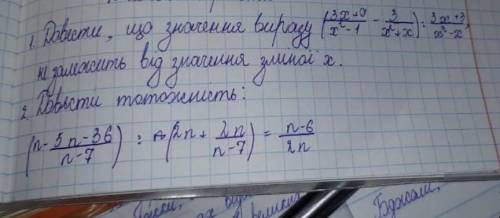 1. Довести, що значення виразу (3x+9/x²-1 - 3/x²+x) : 3x+3/x²-x,
не залежить від значення змінної x.
2. Довести тотожність:
(n - 5n-36/n-7) : (2n + 2n/n-7) = n-6/2n